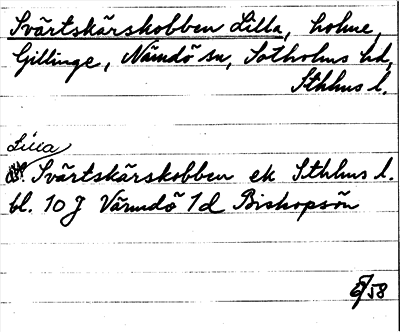 Svärtskärskobben Lilla, holme,
Gillinge, Nämdö sn, Sotholms hd,
Sthlms l.
Lilla
Svärtskärskobben ek Sthlms l.
bl. 10 J Värmdö 1d Biskopsön
E/58